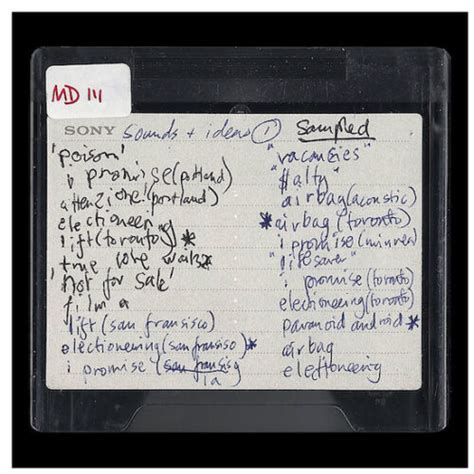 MD 111
SONY sounds + ideas ① Sampled
'poison'
i promise (portland)
attenzione! (portland)
electioneering
lift (toronto) *
true love waits *
'not for sale'
lift (san fransisco)
electioneering (san fransisco) *
i promise (san fransis
la
"vacansies"
"$alty"
airbag (acoustic)
* airbag (toronto)
i promise (minnea
"lifesaver"
i promise (toronto)
electioneering (toronto)
paranoid android *
airbag
electioneering